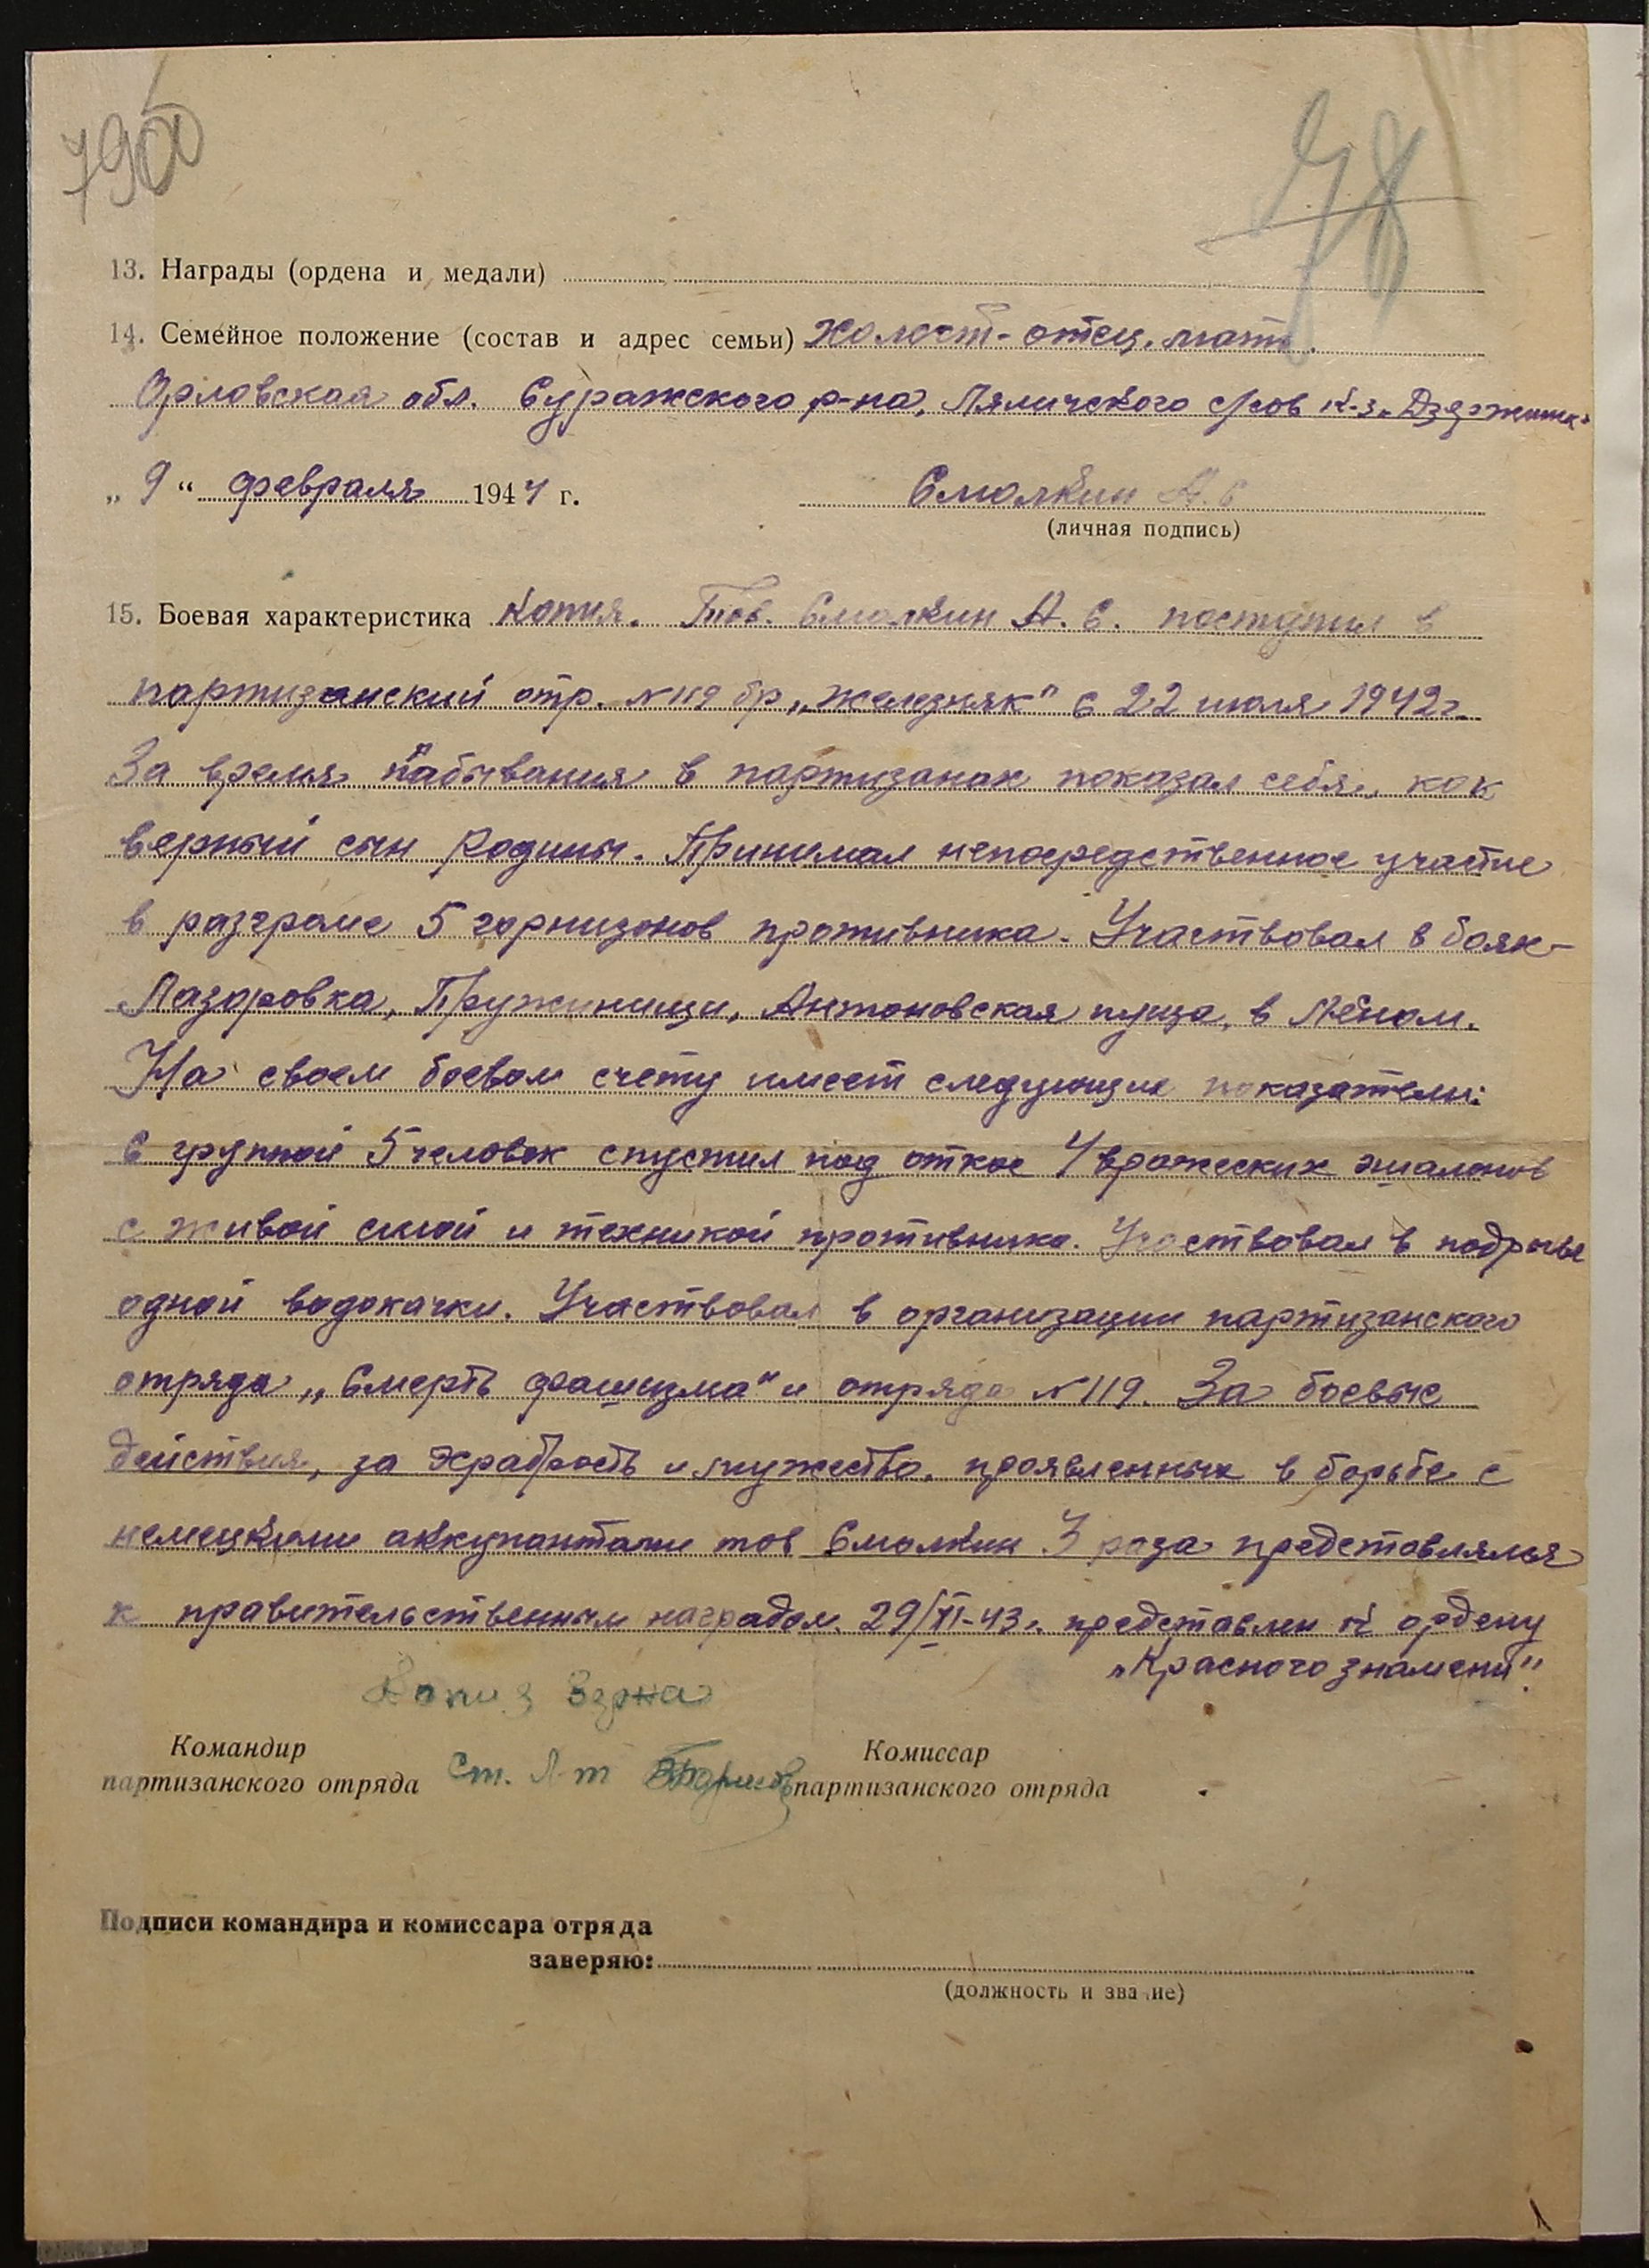 7900
78
13. Награды (ордена и медали)
14. Семейное положение (состав и адрес семьи) Холост - отец, мать.
Орловская обл. Суражского р-на, Ляличского с/сов к-з „Дзяржинск"
„ 9 " февраля 1944 г. Смолкин А.С
(личная подпись)
15. Боевая характеристика Копия. Тов. Смолкин А. С. поступил в
партизанский отр. №119 бр „Железняк" с 22 июля 1942г.
За время пабывания в партизанах показал себя, как
верный сын Родины. Принимал непосредственное участие
в разгроме 5 горнизонов противника. Участвовал в боях -
Лазаровка, Пружинищи, Антоновская пуща, в
На своем боевом счету имеет следующие показатели:
С групной 5 человек спустил под откос 4 вражеских эшалонов
с живой силой и техникой противника. Участвовал в подрыве
одной водокачки. Участвовал в организации партизанского
отряда „Смерть фашизма" и отряда №119. За боевые
действия, за храбрость и мужество, проявленных в борьбе с
немецкими аккупантами тов Смолкин 3 раза представлялся
к правительственным наградам. 29/XI-43г. представлен к ордену
„Красного знамени".
Копия верна
Командир Комиссар
партизанского отряда Ст. Л-т партизанского отряда
Подписи командира и комиссара отряда
заверяю:
(должность и звание)
1